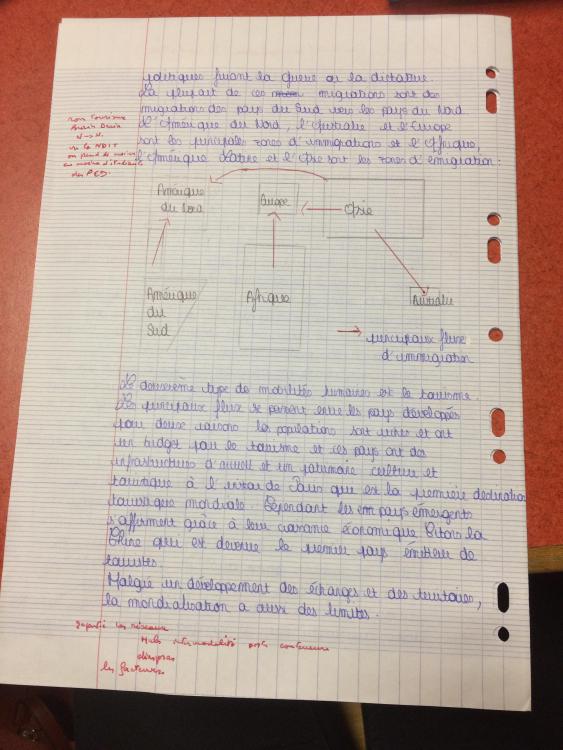 politiques fuiant la guerre ou la dictature.
La plupart de ces migrations sont des
migrations des pays du Sud vers les pays du Nord
L'Amérique du Nord, l'Australie et l'Europe
sont les principales zones d'immigrations et l'Afrique,
l'Amérique latine et l'Asie sont les zones d'émigration:
non
la NDIT
des PED.
Amérique
du Nord
Europe
Asie
Amérique
du
Sud
Afrique
Australie
principaux flux
d'immigration
Le deuxième type de mobilités humaines est le tourisme.
Les principaux flux se passent entre les pays développés
pour deux raisons les populations sont riches et ont
un budget pour le tourisme et ces pays ont des
infrastructures d'accueil et un patrimoine culture et
touristique à l'instar de Paris qui est la première destination
touristique mondiale. Cependant les pays émergents
s'affirment grâce à leur croissance économique. Citons la
Chine qui est devenue le premier pays émetteur de
touristes.
Malgré un développement des échanges et des territoires,
la mondialisation a aussi des limites.
les réseaux
Hubs intermodalité ports conteneurs
diasporas
les facteurs